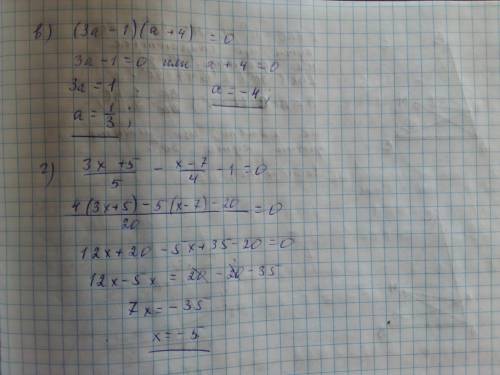 в) (3a - 1)(a + 4) = 0
3a - 1 = 0 или a + 4 = 0
3a = 1
a = 1/3; a = -4
г) (3x + 5)/5 - (x - 7)/4 - 1 = 0
(4(3x + 5) - 5(x - 7) - 20)/20 = 0
12x + 20 - 5x + 35 - 20 = 0
12x - 5x = 20 - 20 - 35
7x = -35
x = -5